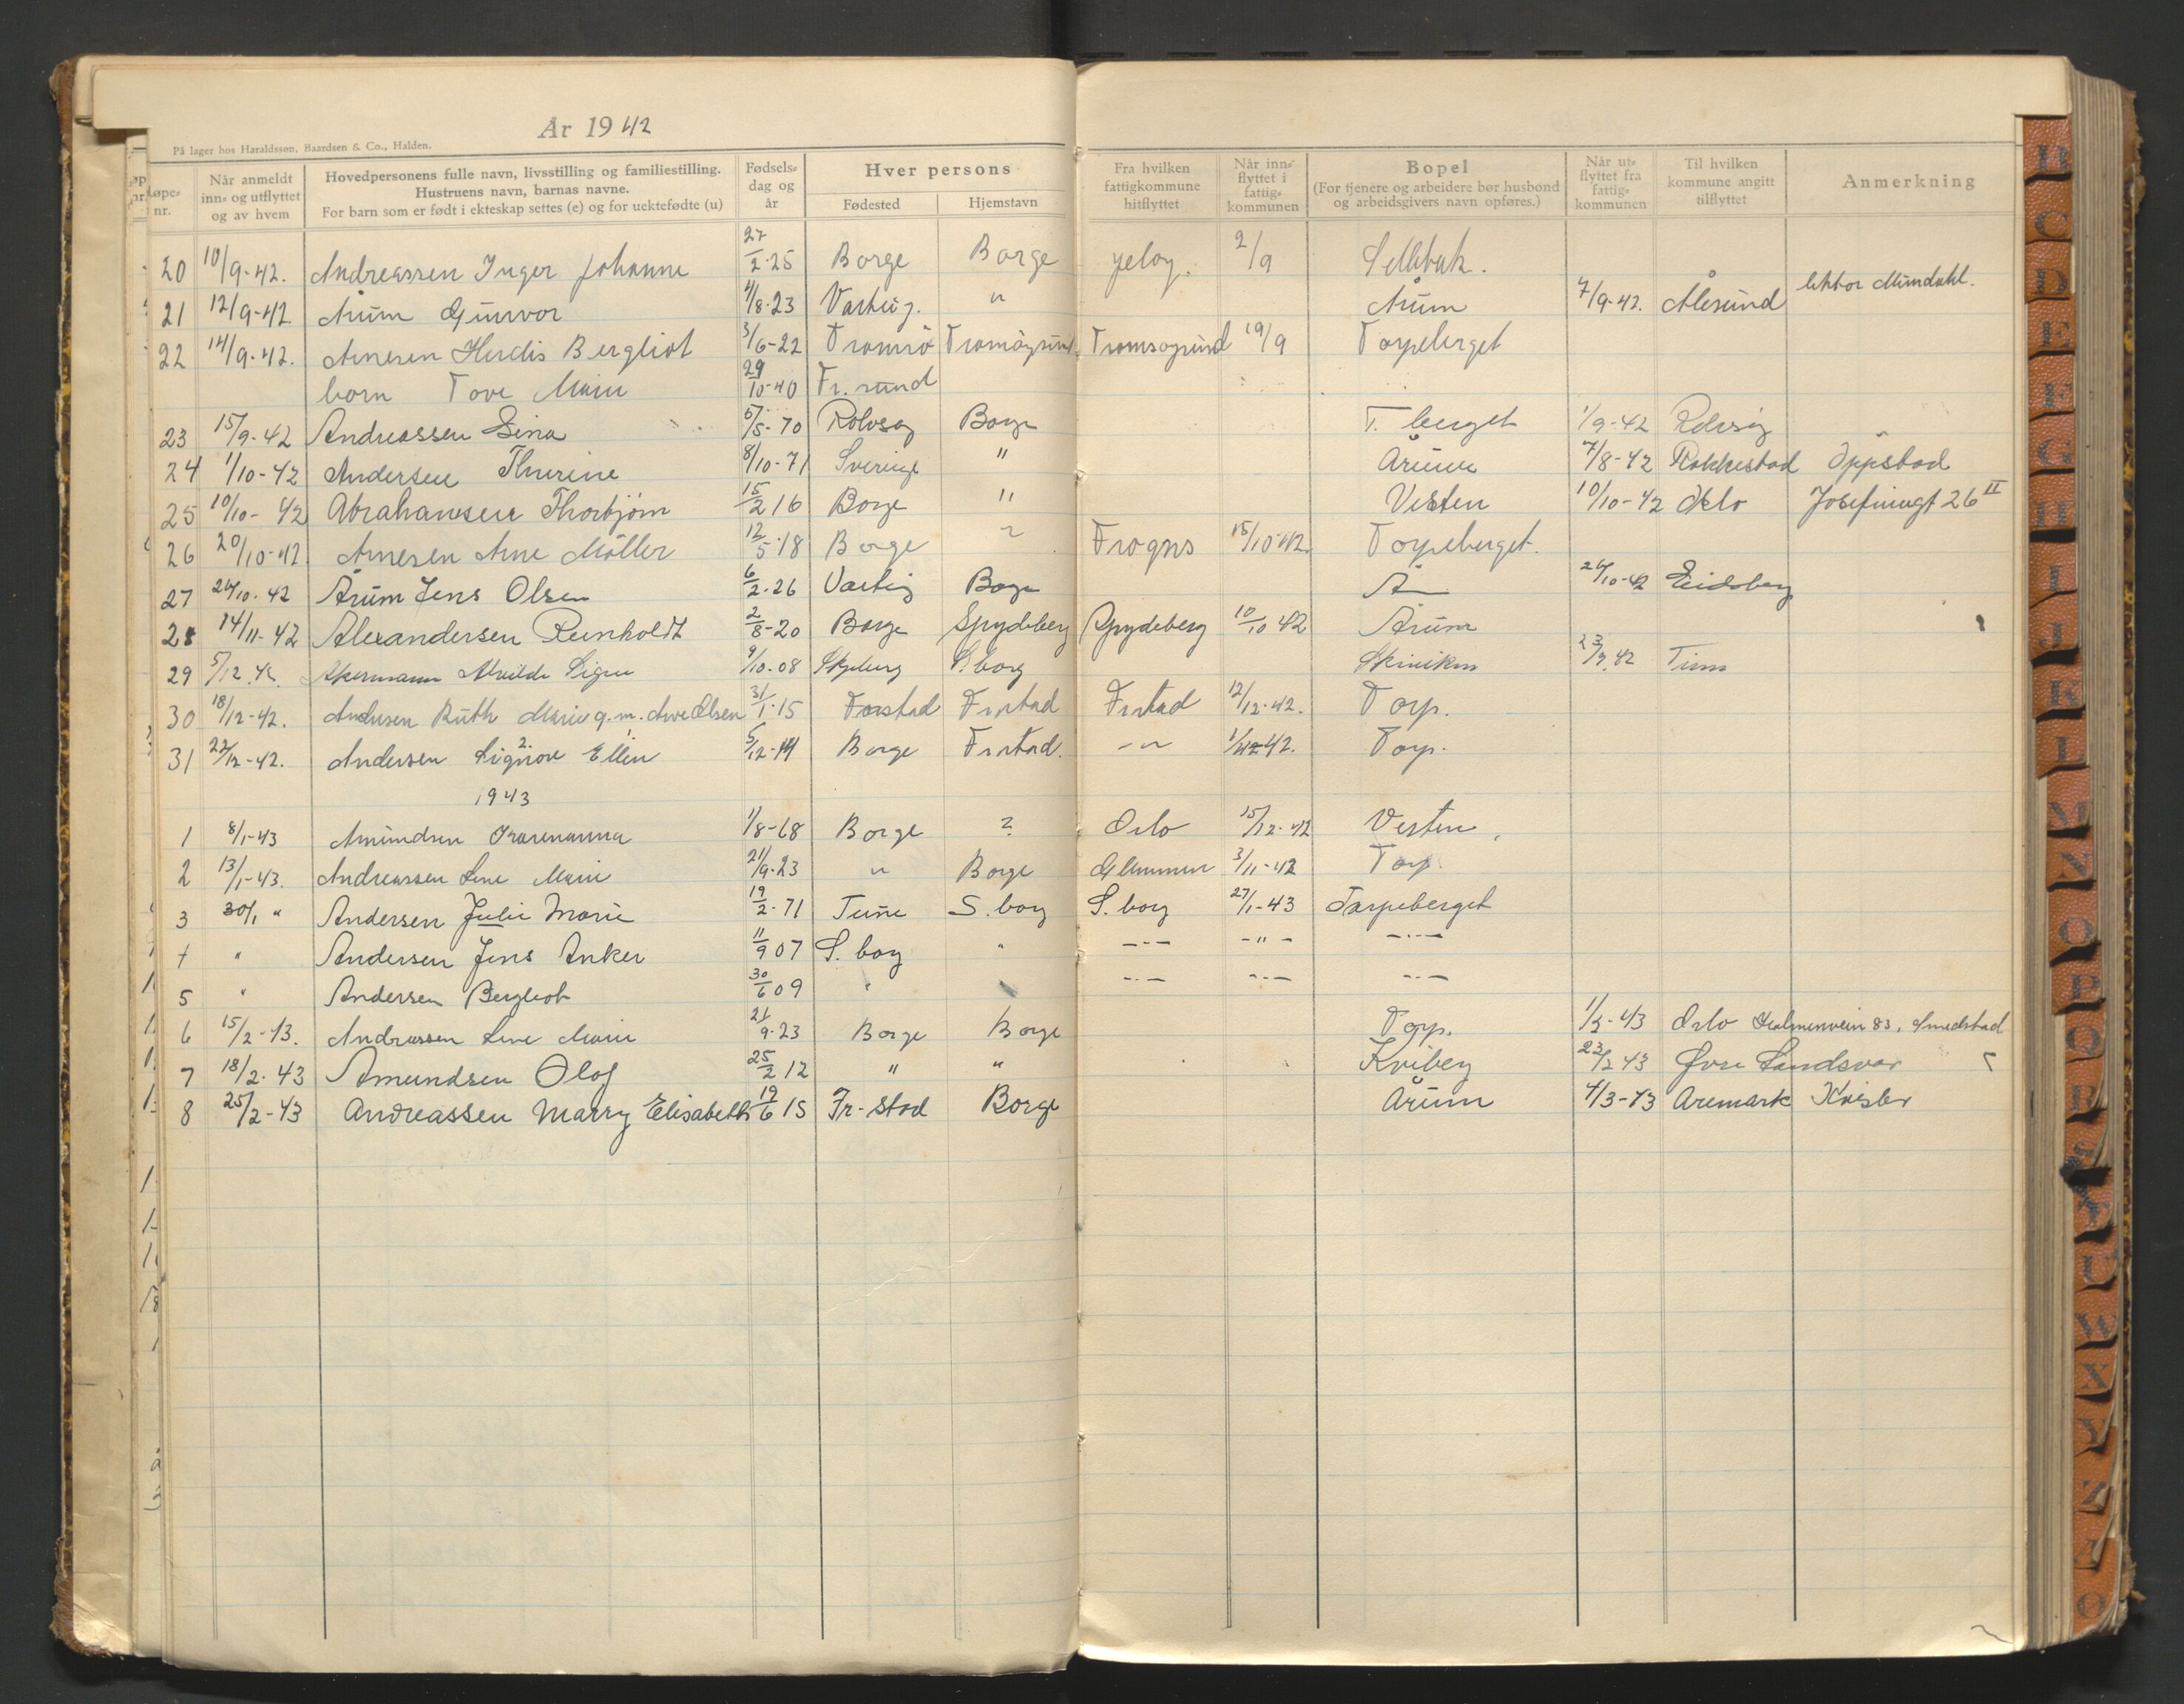 År 1942
På lager hos Haraldssøn, Baardsen & Co., Halden.
Løpenr. | Når anmeldt inn- og utflyttet og av hvem | Hovedpersonens fulle navn, livsstilling og familiestilling. Hustruens navn, barnas navne. For barn som er født i ekteskap settes (e) og for uektefødte (u) | Fødselsdag og år | Hver persons Fødested | Hjemstavn | Fra hvilken fattigkommune hitflyttet | Når innflyttet i fattigkommunen | Bopel (For tjenere og arbeidere bør husbond og arbeidsgivers navn opføres.) | Når utflyttet fra fattigkommunen | Til hvilken kommune angitt tilflyttet | Anmerkning
20 10/9-42. Andreassen Inger Johanne 27/2-25 Borge Borge Jeløy. 2/9 Sellebak.
21 12/9-42 Årum Gunvor 4/8-23 Varteig. " Årum 7/9-42. Ålesund lektor Mundahl.
22 14/9-42. Arnesen Herdis Bergliot 3/6-22 Tromsö Tromöysund Tromsøysund 19/9 Torpeberget
barn Tove Marie 29/10-40 Fr.sund
23 15/9-42 Andreassen Lina /5-70 Rolvsøy Borge T. berget 1/9-42 Rolvsøy
24 1/10-42 Andersen Thurine 8/10-71 Sverige " Årum 7/8-42 Rakkestad Öppstad
25 10/10-42 Abrahamsen Thorbjørn 15/2 16 Borge " Visten 10/10-42 Oslo Josefinegt 26 II
26 20/10-42 Arnesen Arne Möller 12/5-18 Borge " Frogns 15/10-42. Torpeberget.
27 24/10-42 Årum Jens Olsen 6/2-26 Varteig Borge Å 24/10-42 Eidsberg
28 14/11-42 Alexandersen Reinholdt 2/8-20 Borge Spydeberg Spydeberg 10/10 42 Årum
29 5/12.42. Akermann Alvilde Signe 9/10-08 Skjeberg S.borg 23/9.42 Tune
30 18/12-42. Andersen Ruth Marie g.m. Arve Olsen 31/1-15 Frstad Frstad Frstad 12/12-42. Torp.
31 22/12-42. Andersen Signore Ellen 5/12-14 Borge Frstad. -"- 1/12 42. Torp.
1943
1 8/1-43 Amundsen 1/8-68 Borge ? Oslo 15/12-42 Visten.
2 13/1-43. Andreassen Lene Marie 21/9-23 " Borge Glemmen 3/11-42 Torp.
3 30/1 " Andersen Julie Marie 19/2-71 Tune S.borg S.borg 27/1-43 Torpeberget
4 " Andersen Jens Anker 11/9 07 S.borg " -"- -"- -"-
5 " Andersen Bergliot 30/6 09 " " -"- -"- -"-
6 15/2-43. Andreassen Lene Marie 21/9-23 Borge Borge Torp. 1/2-43 Oslo Holmenveien 83, Smedstad
7 18/2-43 Amundsen Olaf 25/2 12 " " Kviberg 23/2 43 Øvre Sandsvær
8 25/2-43 Andreassen Marry Elisabeth 19/6 15 Fr-stad Borge Årum 4/3-43 Aremark